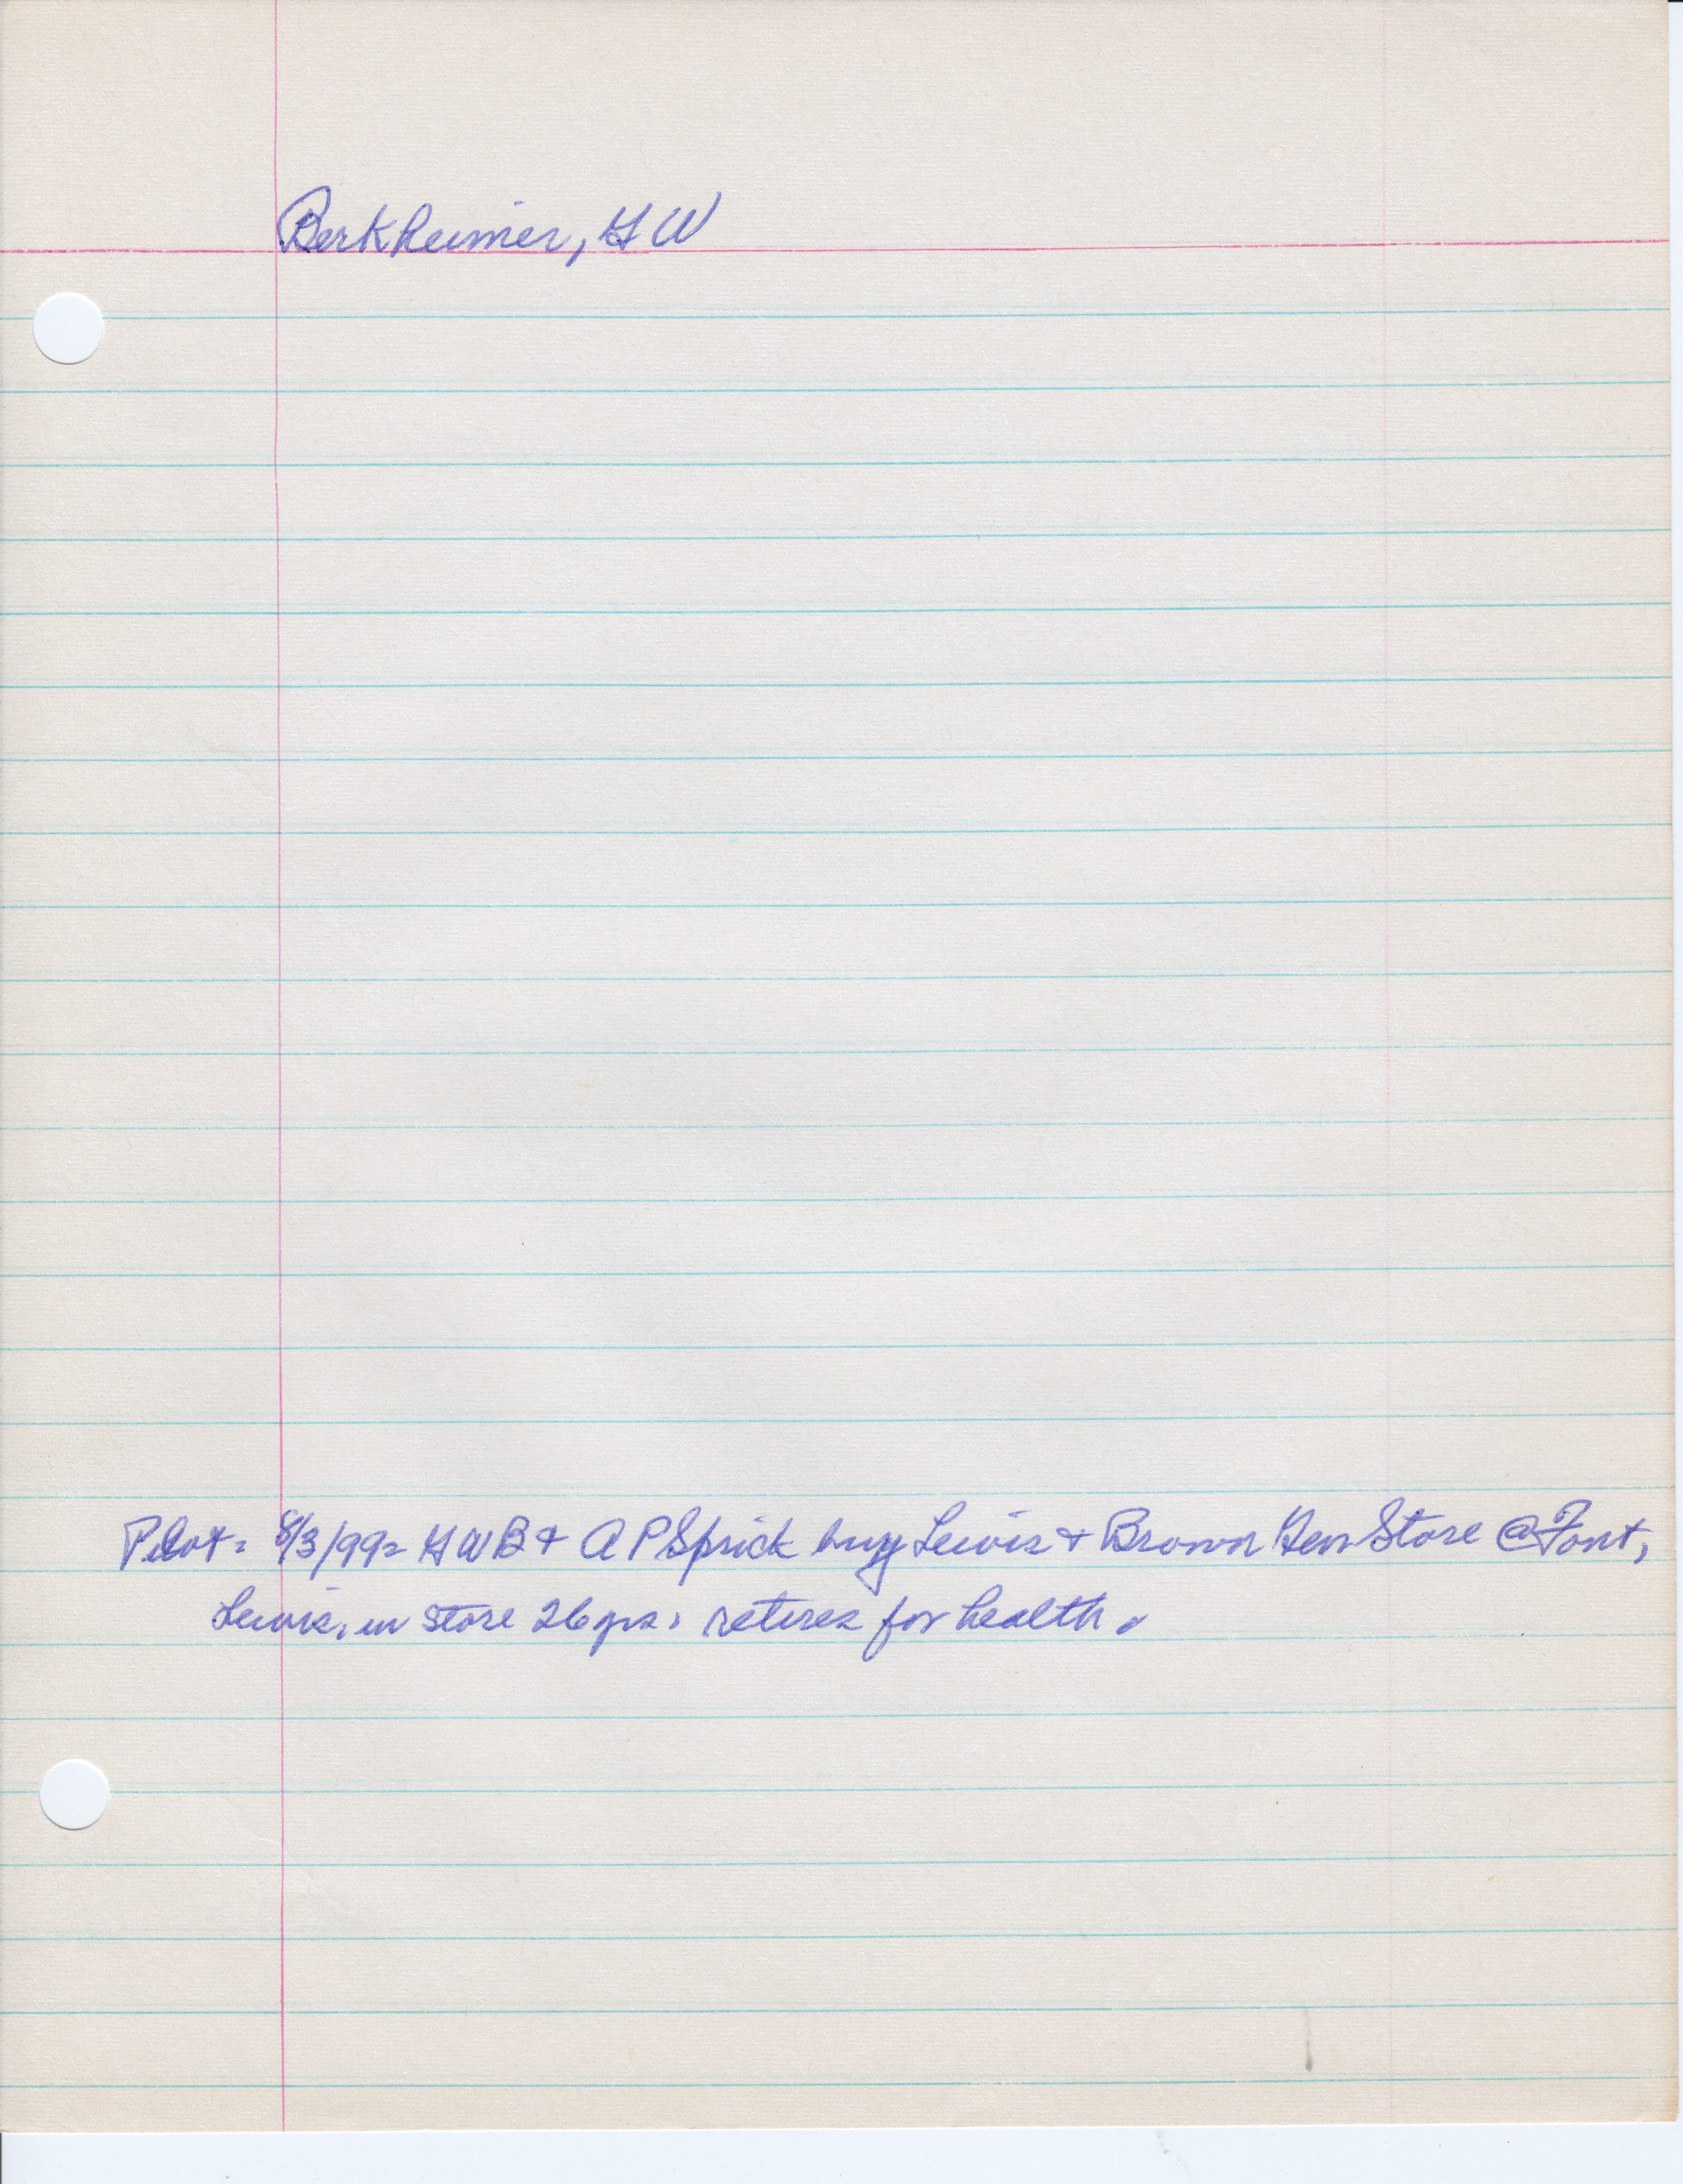 Berkheimer, G W
Pilot: 8/3/99= G W B & A P Sprick buy Lewis & Brown Gen Store @ Font,
Lewis, in store 26 yrs, retires for health.